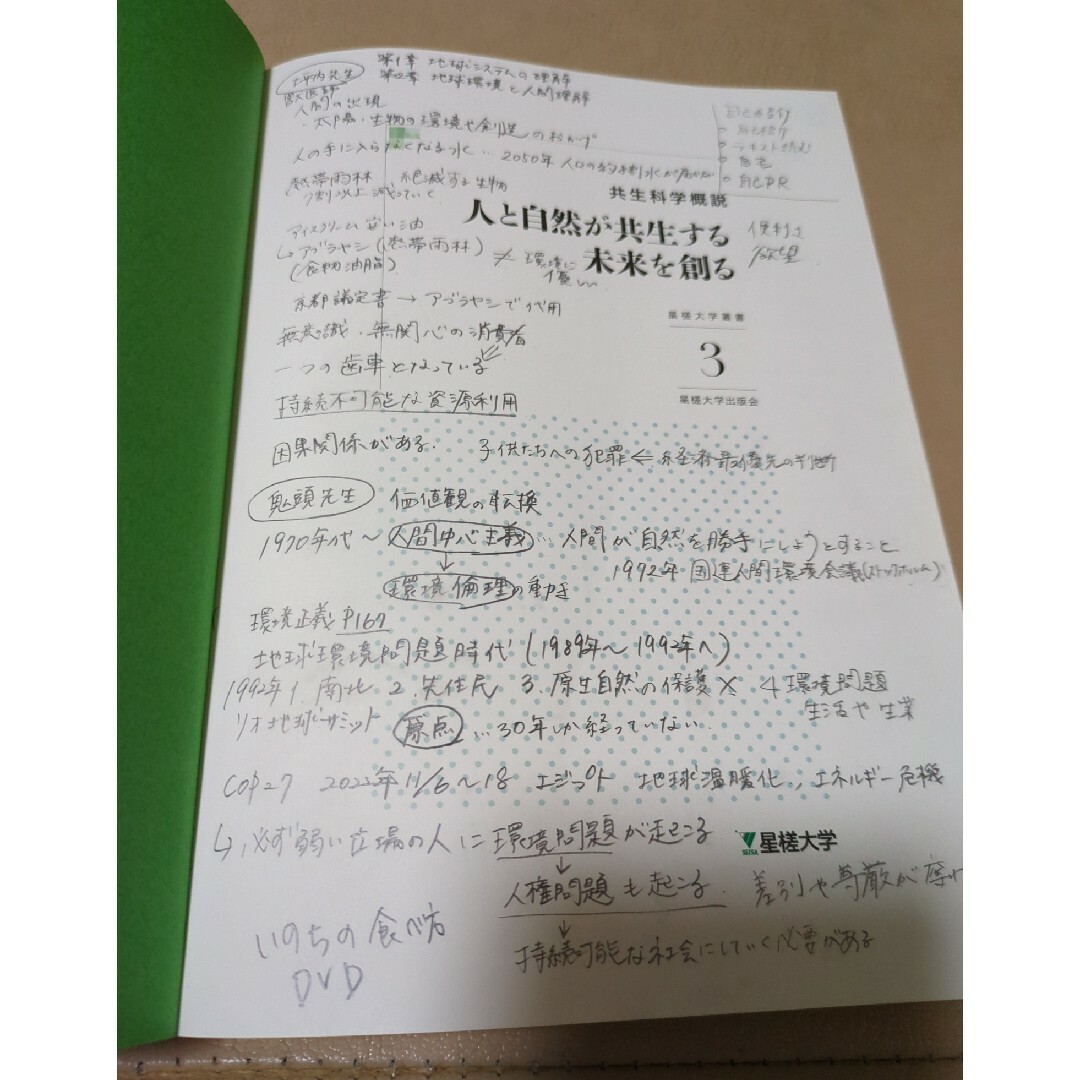 第1章 地球システムの理解
第2章 地球環境と人間理解
坪内先生
獣医師
人間の出現
・太陽・生物の環境や創造のおかげ
自己紹介
テキスト読む
自宅
自己PR
人の手に入らなくなる水…2050年人口の約4割水が
熱帯雨林 絶滅する生物
7割以上減っていく
共生科学概説
人と自然が共生する
未来を創る
便利さ
欲望
アイスクリーム 安い油
↳アブラヤシ(熱帯雨林)
(食物油脂)
≠ 環境に
優しい
京都議定書→アブラヤシで代用
無意識・無関心の消費者
一つの歯車となっている
星槎大学叢書
3
星槎大学出版会
持続不可能な資源利用
因果関係がある. 子供たちへの犯罪←経済最優先の判断
鬼頭先生 価値観の転換
1970年代~人間中心主義…人間が自然を勝手にしようとすること
↓ 1992年 国連人間環境会議(ストックホルム)
環境倫理の動き
環境正義P167
地球環境問題時代(1989年~1992年へ)
1992年 1.南北 2.先住民 3.原生自然の保護× 4環境問題
生活や生業
リオ地球サミット 原点…30年しか経っていない.
COP27 2022年11/6~18 エジプト 地球温暖化, エネルギー危機
↳必ず弱い立場の人に環境問題が起こる
星槎大学
↓
人権問題も起こる. 差別や尊厳が
↓
持続可能な社会にしていく必要がある
いのちの食べ方
DVD